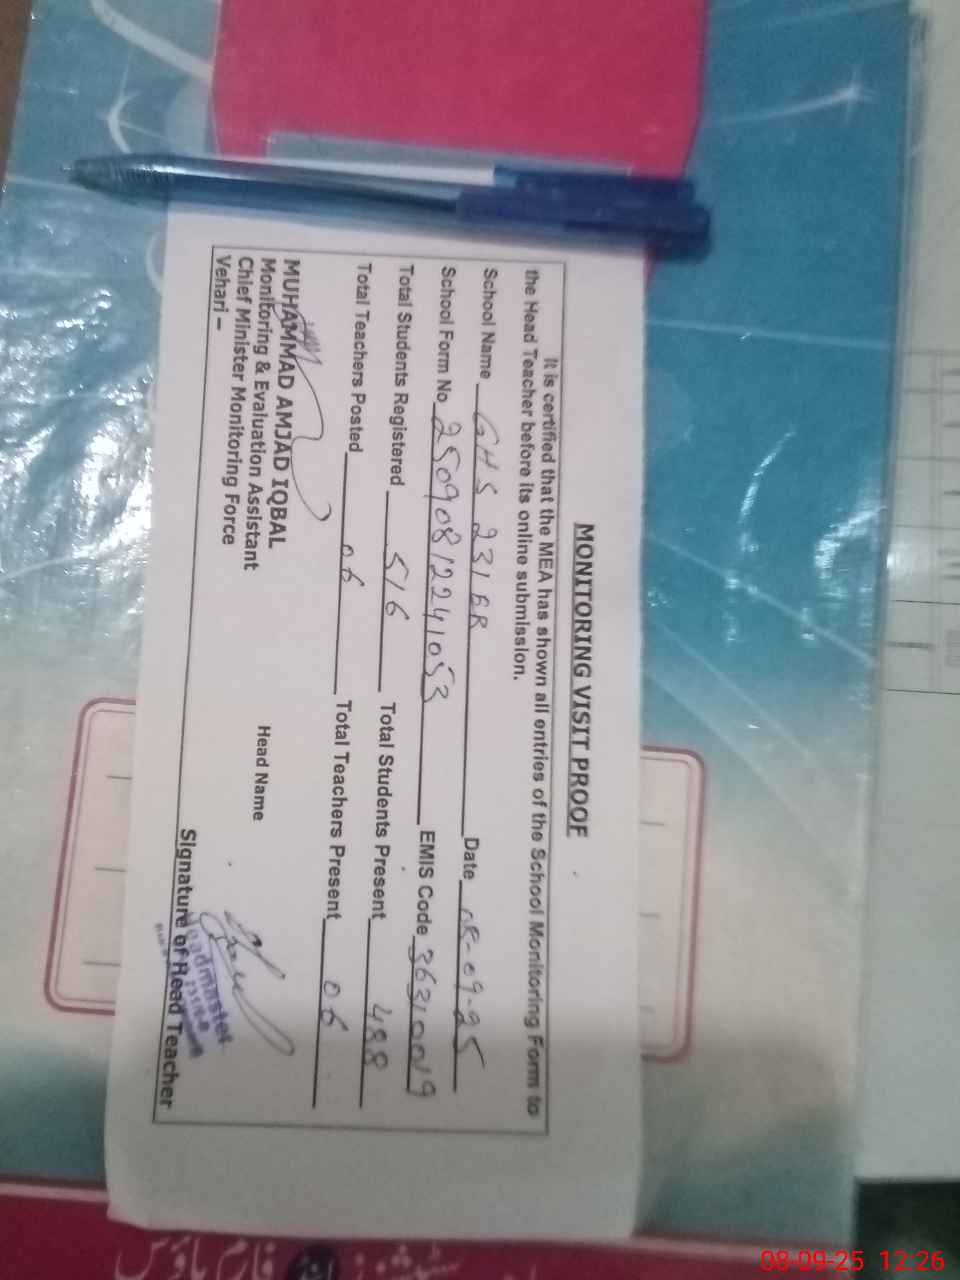 MONITORING VISIT PROOF
It is certified that the MEA has shown all entries of the School Monitoring Form to
the Head Teacher before its online submission.
School Name GHS 231 EB Date 08-09-25
School Form No 25090812241053 EMIS Code 36310019
Total Students Registered 516 Total Students Present 488
Total Teachers Posted 06 Total Teachers Present 06
MUHAMMAD AMJAD IQBAL
Monitoring & Evaluation Assistant Head Name
Chief Minister Monitoring Force
Vehari –
Headmaster
Signature of Head Teacher
فارم ہاؤس
08-09-25 12:26